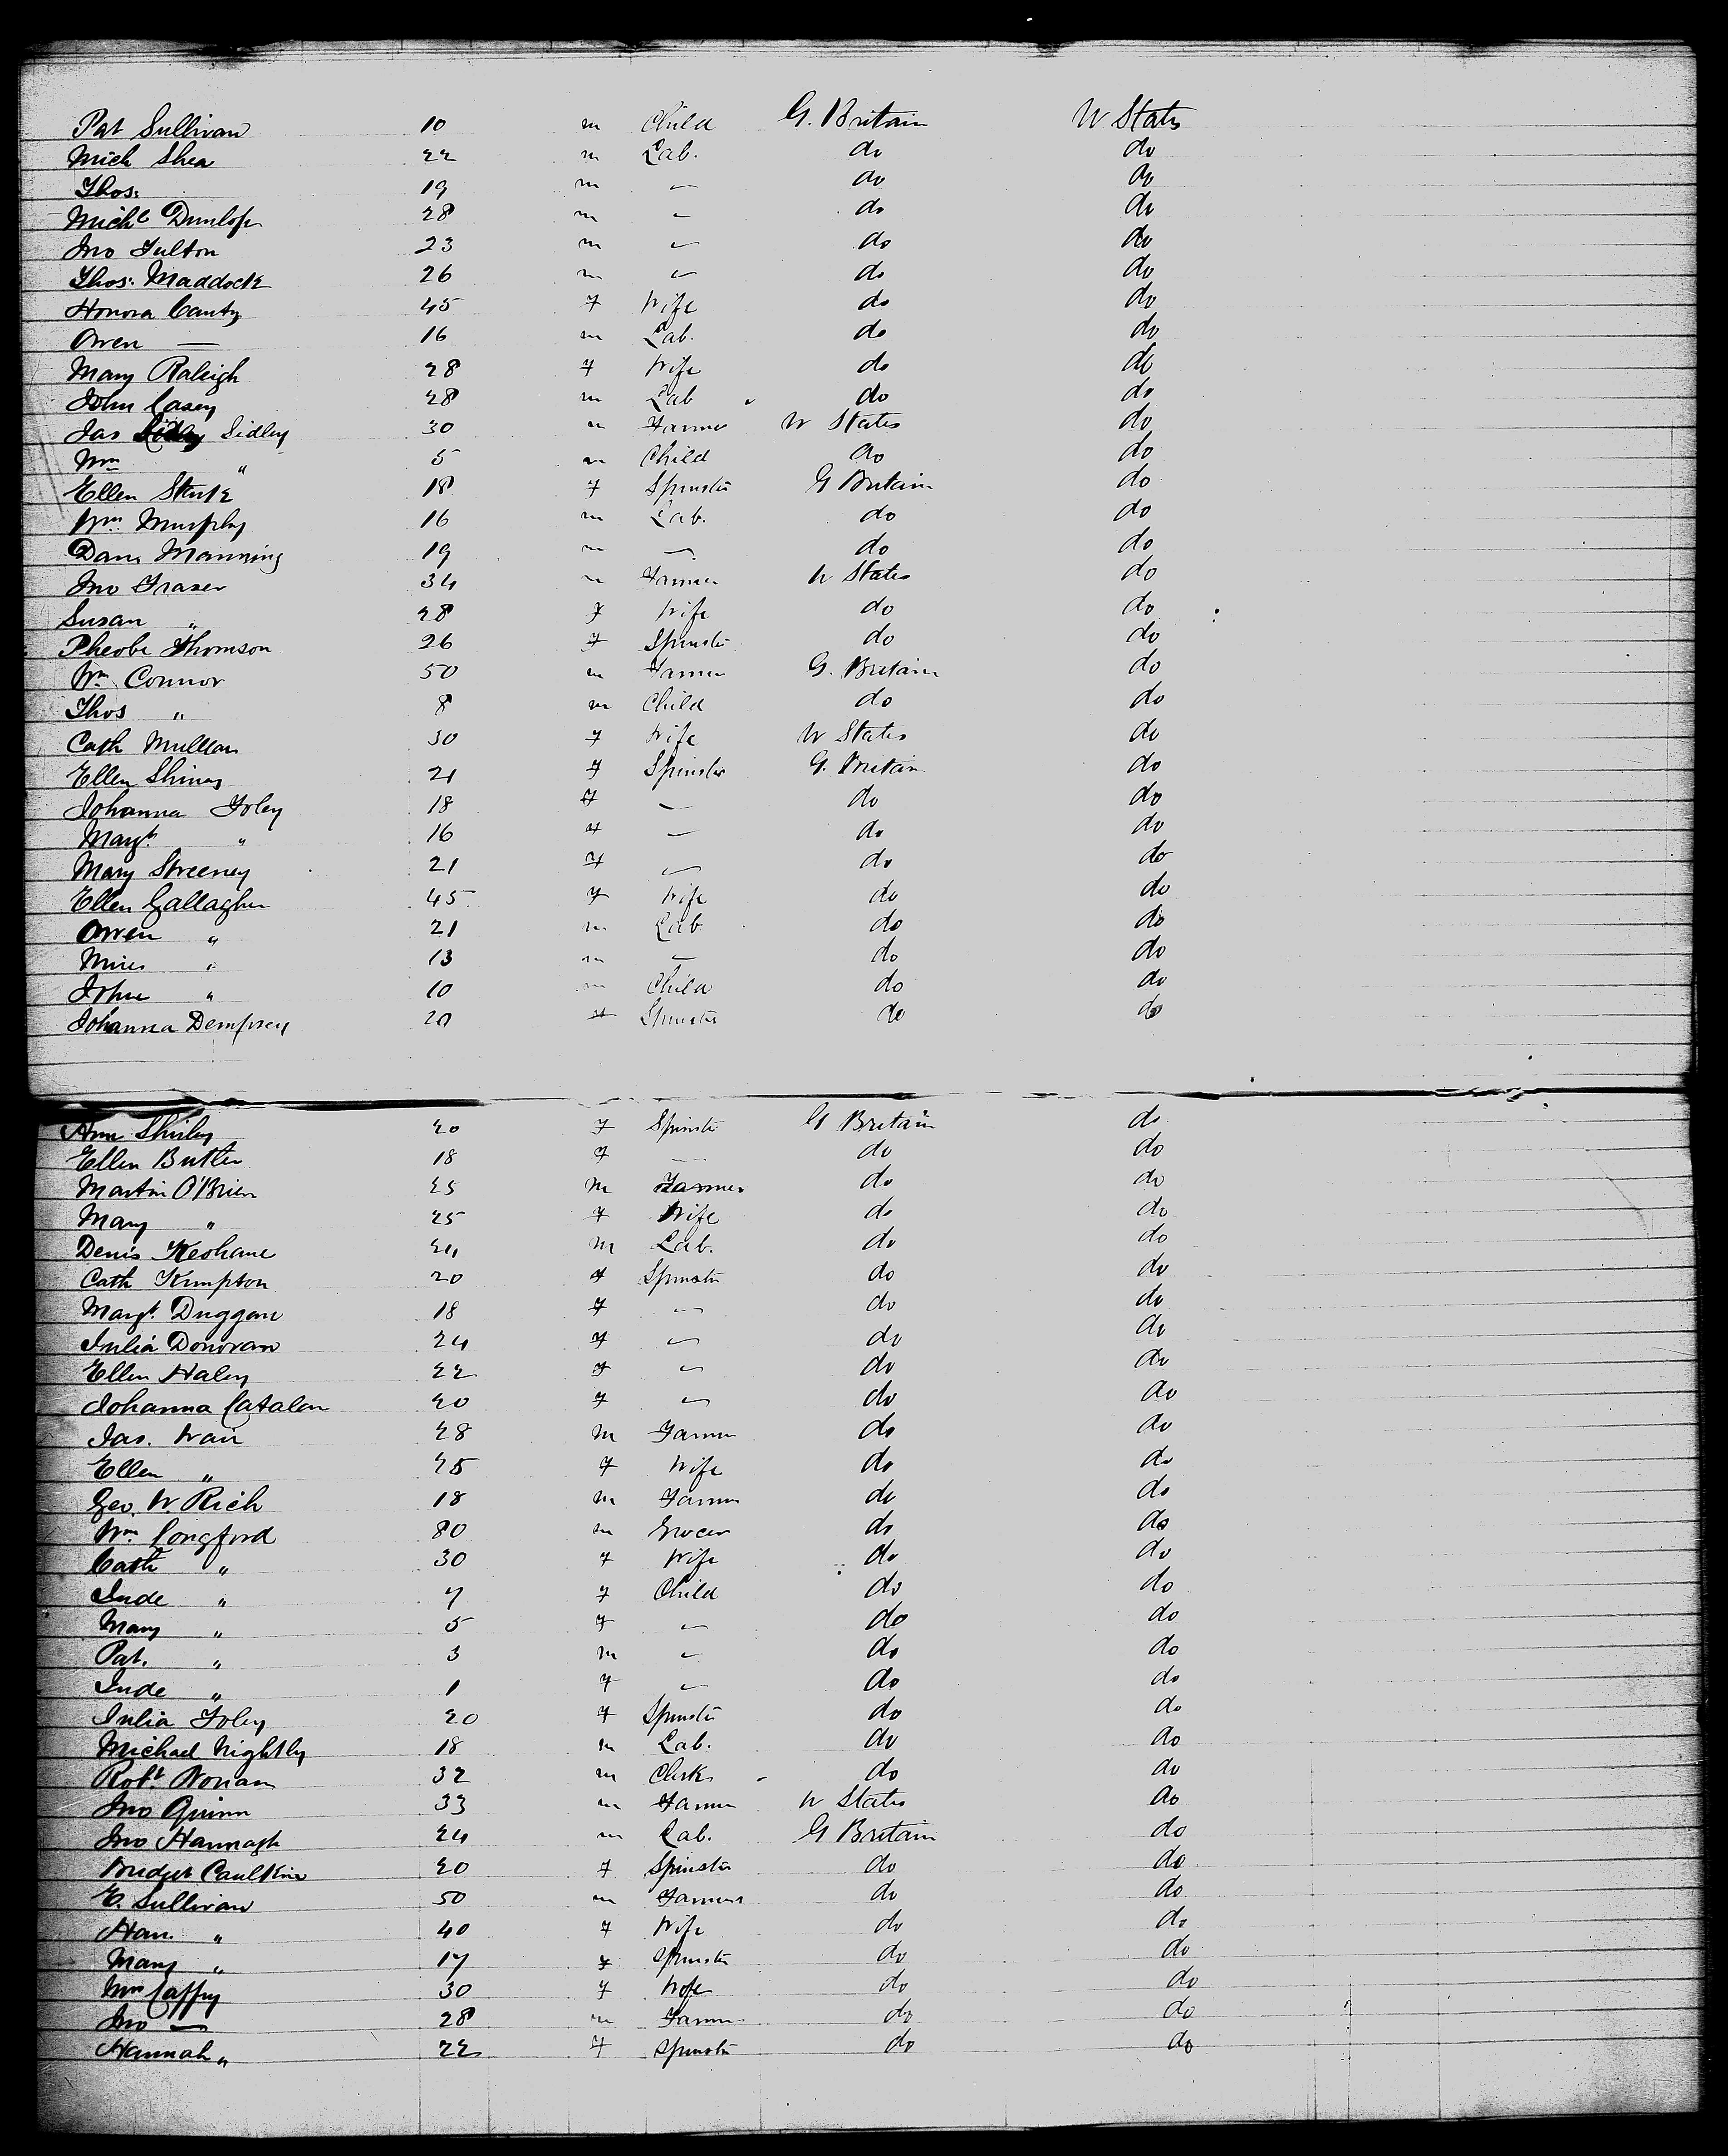 Pat Sullivan 10 m Child G. Britain U States
Mich Shea 22 m Lab. do do
Thos. 19 m — do do
Michl Dunlop 28 m — do do
Jno Fulton 23 m — do do
Thos. Maddock 26 m — do do
Honora Canty 45 f Wife do do
Owen — 16 m Lab. do do
Mary Raleigh 28 f Wife do do
John Casey 28 m Lab do do
Jas Sidley 30 m Farmer U States do
Wm " 5 m Child do do
Ellen 18 f Spinster G Britain do
Wm Murphy 16 m Lab. do do
Danl Manning 19 m — do do
Jno Fraser 34 m Farmer U States do
Susan " 28 f Wife do do
Pheobe Thomson 26 f Spinster do do
Wm Connor 50 m Farmer G. Britain do
Thos " 8 m Child do do
Cath Mullan 30 f Wife U States do
Ellen 21 f Spinster G. Britain do
Johanna Foley 18 f — do do
Margt " 16 f — do do
Mary Streeney 21 f — do do
Ellen Gallagher 45 f Wife do do
Owen " 21 m Lab do do
Miles " 13 m — do do
John " 10 m Child do do
Johanna Dempsey 20 f Spinster do do
Ann Shirley 20 f Spinster G Britain do
Ellen Butler 18 f — do do
Martin O'Brien 25 m Farmer do do
Mary " 25 f Wife do do
Denis Keohane 24 m Lab. do do
Cath Kimpton 20 f Spinster do do
Margt Duggan 18 f — do do
Julia Donovan 24 f — do do
Ellen Haley 22 f — do do
Johanna Catalan 20 f — do do
Jas. Wair 28 m Farmer do do
Ellen " 25 f Wife do do
Geo. W. Rich 18 m Farmer do do
Wm Longford 80 m Grocer do do
Cath " 30 f Wife do do
Jude " 7 f Child do do
Mary " 5 f — do do
Pat. " 3 m — do do
Jude " 1 f — do do
Julia Foley 20 f Spinster do do
Michael Nightly 18 m Lab. do do
Robt 32 m Clerk do do
Jno Quinn 33 m Farmer U States do
Jno Hannagh 24 m Lab. G Britain do
Bridget Caulkine 20 f Spinster do do
E. Sullivan 50 m Farmer do do
Han. " 40 f Wife do do
Mary " 17 f Spinster do do
Mrs Caffry 30 f Wife do do
Jno — 28 m Farmer do do
Hannah " 22 f Spinster do do